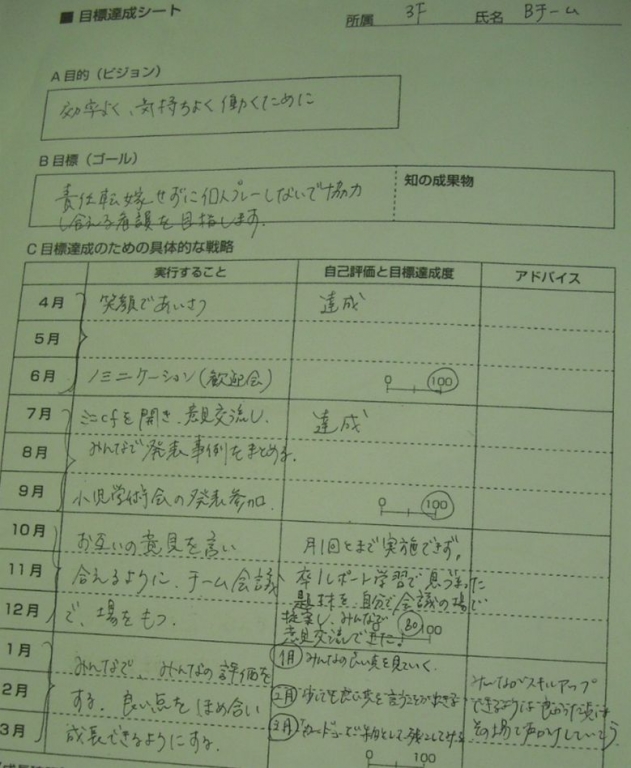 ■ 目標達成シート
所属 3F 氏名 Bチーム
A 目的（ビジョン）
効率よく、気持ちよく働くために
B 目標（ゴール）
知の成果物
責任転嫁せずに個人プレーしないで協力
し合える看護を目指します。
C 目標達成のための具体的な戦略
実行すること 自己評価と目標達成度 アドバイス
4月 笑顔であいさつ 達成
5月
6月 ノミニケーション(歓迎会) 0 100
7月 ミニcfを開き、意見交流し、 達成
8月 みんなで発表事例をまとめる。
9月 小児学術会の発表参加 0 100
10月 お互いの意見を言い 月1回とまで実施できず、
11月 合えるように、チーム会議 卒1レポート学習で
12月 で、場をもつ。 題材を、自分で会議の場で
提案し、みんなで 80 100
意見交流できた!
1月 みんなで、みんなの評価を 1月 みんなの良い点を見ていく。
2月 する。良い点をほめ合い 2月 みんながスキルアップ
3月 成長できるようにする。 3月 その場で声かけしていこう
0 100